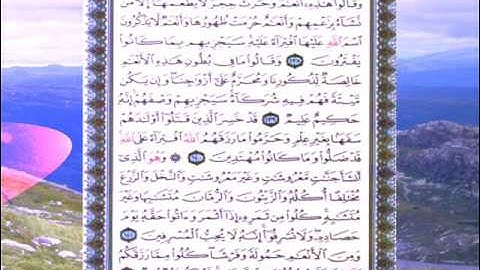 وَقَالُوا۟ هَـٰذِهِۦٓ أَنْعَـٰمٌ وَحَرْثٌ حِجْرٌ لَّا يَطْعَمُهَآ إِلَّا مَن
نَّشَآءُ بِزَعْمِهِمْ وَأَنْعَـٰمٌ حُرِّمَتْ ظُهُورُهَا وَأَنْعَـٰمٌ لَّا يَذْكُرُونَ
ٱسْمَ ٱللَّهِ عَلَيْهَا ٱفْتِرَآءً عَلَيْهِ سَيَجْزِيهِم بِمَا كَانُوا۟
يَفْتَرُونَ ١٣٨ وَقَالُوا۟ مَا فِى بُطُونِ هَـٰذِهِ ٱلْأَنْعَـٰمِ
خَالِصَةٌ لِّذُكُورِنَا وَمُحَرَّمٌ عَلَىٰٓ أَزْوَٰجِنَا وَإِن يَكُن
مَّيْتَةً فَهُمْ فِيهِ شُرَكَآءُ سَيَجْزِيهِمْ وَصْفَهُمْ إِنَّهُۥ
حَكِيمٌ عَلِيمٌ ١٣٩ قَدْ خَسِرَ ٱلَّذِينَ قَتَلُوٓا۟ أَوْلَـٰدَهُمْ
سَفَهًۢا بِغَيْرِ عِلْمٍ وَحَرَّمُوا۟ مَا رَزَقَهُمُ ٱللَّهُ ٱفْتِرَآءً عَلَى ٱللَّهِ
قَدْ ضَلُّوا۟ وَمَا كَانُوا۟ مُهْتَدِينَ ١٤٠ وَهُوَ ٱلَّذِىٓ
أَنشَأَ جَنَّـٰتٍ مَّعْرُوشَـٰتٍ وَغَيْرَ مَعْرُوشَـٰتٍ وَٱلنَّخْلَ وَٱلزَّرْعَ
مُخْتَلِفًا أُكُلُهُۥ وَٱلزَّيْتُونَ وَٱلرُّمَّانَ مُتَشَـٰبِهًا وَغَيْرَ
مُتَشَـٰبِهٍ كُلُوا۟ مِن ثَمَرِهِۦٓ إِذَآ أَثْمَرَ وَءَاتُوا۟ حَقَّهُۥ يَوْمَ
حَصَادِهِۦ وَلَا تُسْرِفُوٓا۟ إِنَّهُۥ لَا يُحِبُّ ٱلْمُسْرِفِينَ ١٤١
وَمِنَ ٱلْأَنْعَـٰمِ حَمُولَةً وَفَرْشًا كُلُوا۟ مِمَّا رَزَقَكُمُ